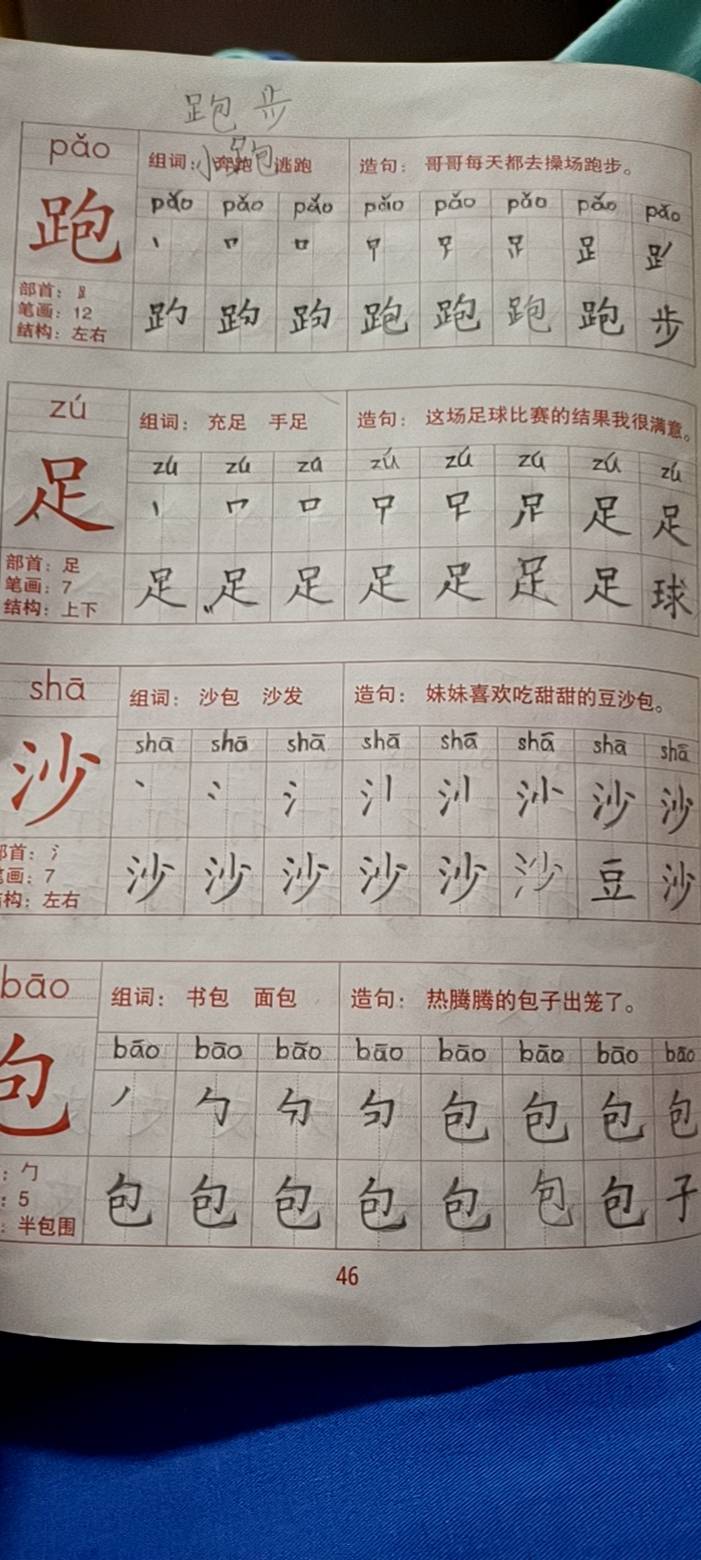 跑 步
小跑
pǎo 组词： 奔跑 逃跑 造句： 哥哥每天都去操场跑步。
跑 pǎo pǎo pǎo pǎo pǎo pǎo pǎo pǎo
部首：𧾷
笔画：12
结构：左右
跑 跑 跑 跑 步
zú 组词： 充足 手足 造句： 这场足球比赛的结果我很满意。
足 zú zú zú zú zú zú zú zú
丶 口 足 足
部首：足
笔画：7
结构：上下
足 足 足 足 足 足 足 球
shā 组词： 沙包 沙发 造句： 妹妹喜欢吃甜甜的豆沙包。
沙 shā shā shā shā shā shā shā shā
丶 冫 氵 沙 沙
部首：氵
笔画：7
结构：左右
沙 沙 沙 沙 沙 沙 豆 沙
bāo 组词： 书包 面包 造句： 热腾腾的包子出笼了。
包 bāo bāo bāo bāo bāo bāo bāo bāo
丿 勹 包 包 包 包
：勹
：5
：半包围
包 包 包 包 包 包 包 子
46